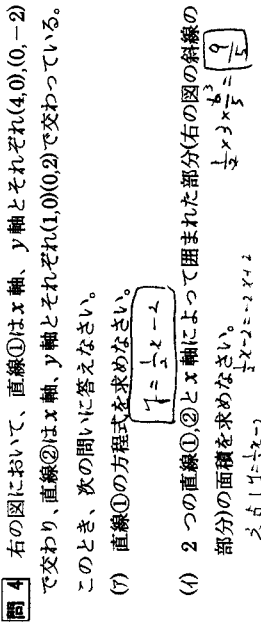 問 4 右の図において、直線①はx軸、y軸とそれぞれ(4,0),(0,−2)
で交わり、直線②はx軸、y軸とそれぞれ(1,0)(0,2)で交わっている。
このとき、次の問いに答えなさい。
(ア) 直線①の方程式を求めなさい。
y=1/2x−2
(イ) 2つの直線①,②とx軸によって囲まれた部分(右の図の斜線の
部分)の面積を求めなさい。
1/2×3×6/5=9/5
3
1/2x−2=−2x+2
y=1/2x−2